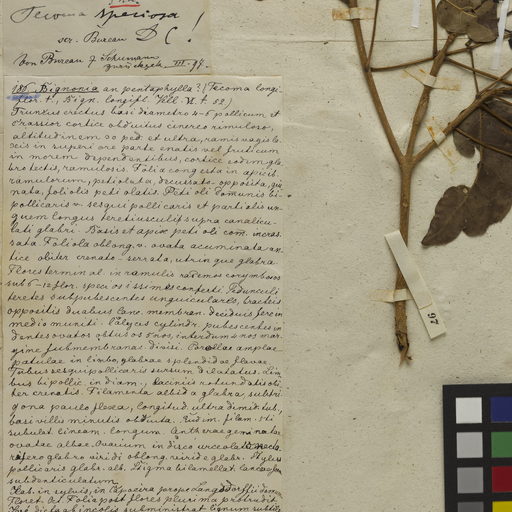 Tecoma speciosa
ser. Bureau DC!
Von Bureau & Schumann
zurückgek. III. 94.
186 Bignonia an pentaphylla? (Tecoma longi
flor. t., Bign. longifl. Vell. VI. t. 52)
Truncus erectus basi diametro 4-5 pollicum et
crassior cortice obductus cinereo rimuloso,
altitudinem 20 ped. et ultra, ramis vagis la
xis in superiore parte enatis vel fruticum
in morem dependentibus, cortice eodem gla
bro tectis, ramulosis. Folia congesta in apicib.
ramulorum, petiolata, decussato-opposita, qui
nata, foliolis petiolatis. Petioli comunis bi-
pollicaris v. sesquipollicaris et partialis un
guem longus teretiusculi supra canalicu-
lati glabri. Basis et apix petioli com. incras
sata. Foliola oblong. v. ovata acuminata an
tice obiter crenato-serrata, utrinque glabra.
Flores terminal. in ramulis racemos corymbosos
sub 6-12 flor. speciosissimos conferti. Pedunculi
teretes subpubescentes unguiculares, bracteis
oppositis duabus lanc. membran. deciduis fere in
medio muniti. Calyces cylindr. pubescentes in
dentes ovatos obtusos 5 nos, interdum 4 nos mar
gine submembranas divisi. Corollae amplae
patulae in limbo, glabrae splendidae flavae
Tubus sesquipollicaris sursum dilatatus. Lim
bus bipollic. in diam., laciniis rotundatis obi
ter crenatis. Filamenta albida glabra, subtri
gona paulo flexa, longitud. ultra dimit. tub.,
basi villis minutis obducta. Rudim. filam. 5ti
subulat. lineam longum. Antherae geminatae
ovatae albae. Ovarium in disco urceolato necta
rifero glabro viridi oblong. viride glabr. Stylus
pollicaris glabr. alb. Stigma bilamellat. lanceo
subdenticulatum.
Hab. in sylvis, in Capoeira prope Langsdorffii dom
Floret. Oct. Folia post flores plurima protrudit.
97